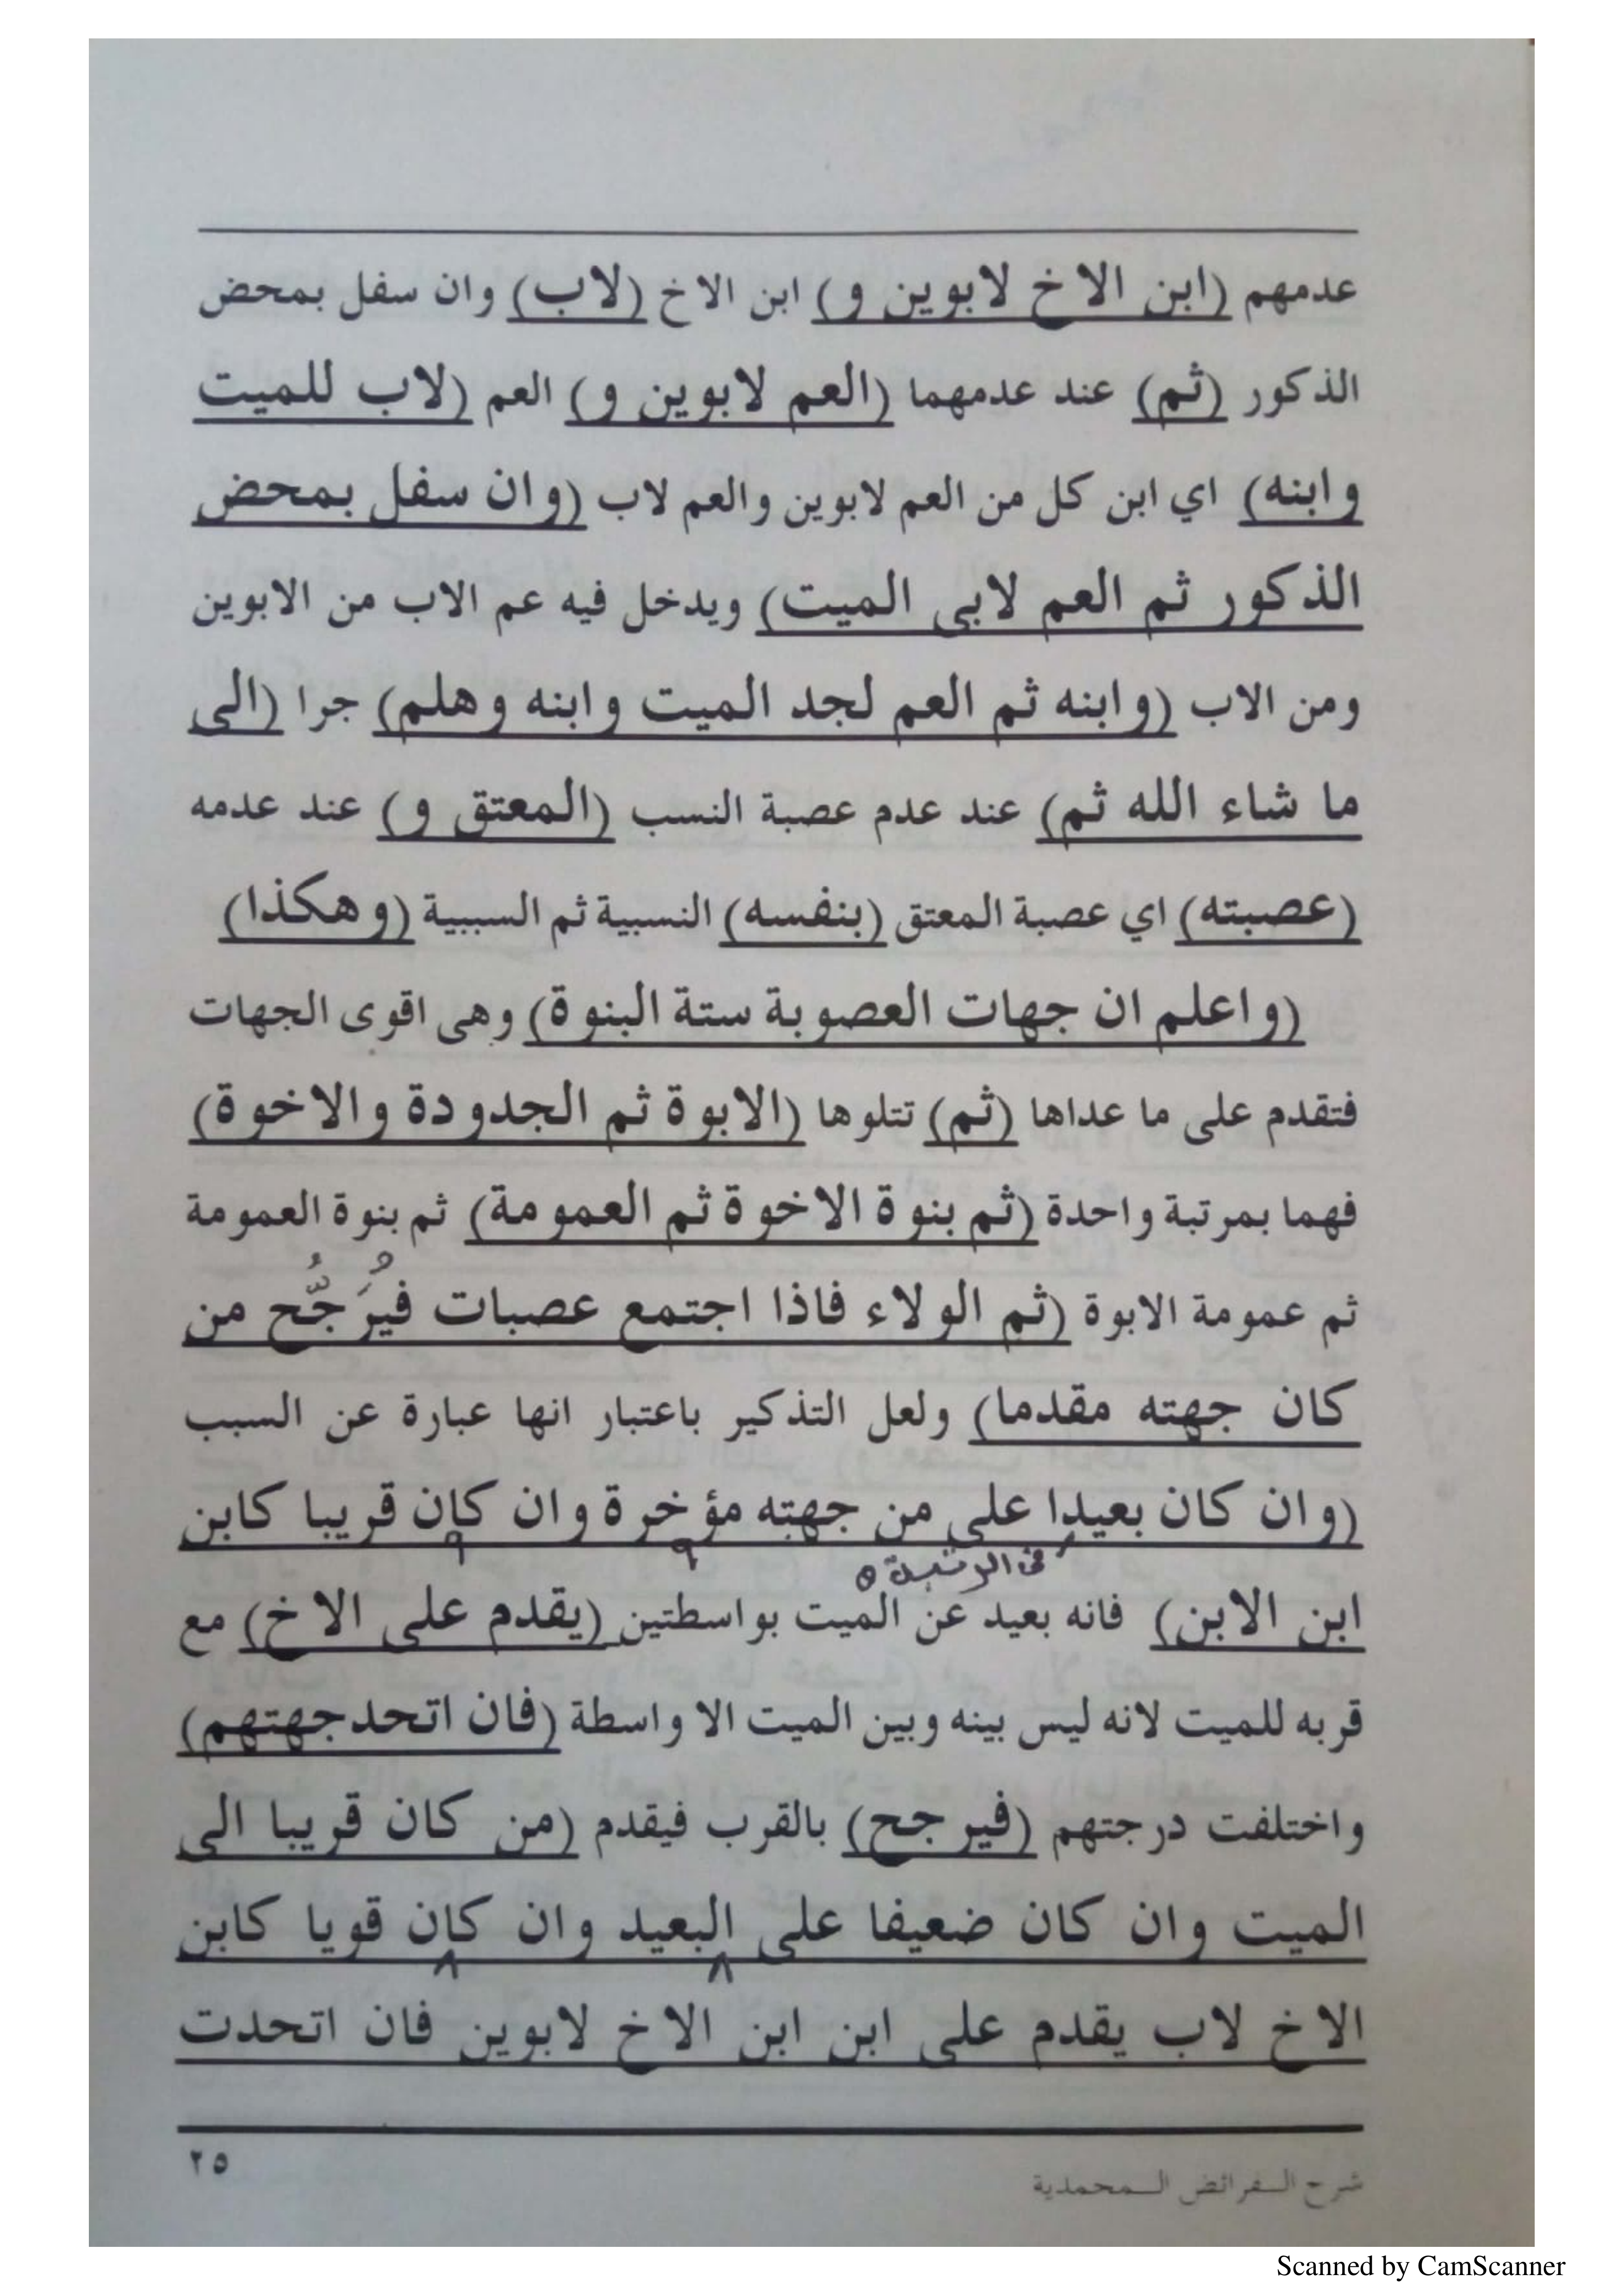 عدمهم (ابن الاخ لابوين و) ابن الاخ (لاب) وان سفل بمحض
الذكور (ثم) عند عدمهما (العم لابوين و) العم (لاب للميت
وابنه) اي ابن كل من العم لابوين والعم لاب (وان سفل بمحض
الذكور ثم العم لابى الميت) ويدخل فيه عم الاب من الابوين
ومن الاب (وابنه ثم العم لجد الميت وابنه وهلم) جرا (الى
ما شاء الله ثم) عند عدم عصبة النسب (المعتق و) عند عدمه
(عصبته) اي عصبة المعتق (بنفسه) النسبية ثم السببية (وهكذا)
(واعلم ان جهات العصوبة ستة البنوة) وهى اقوى الجهات
فتقدم على ما عداها (ثم) تتلوها (الابوة ثم الجدودة والاخوة)
فهما بمرتبة واحدة (ثم بنوة الاخوة ثم العمومة) ثم بنوة العمومة
ثم عمومة الابوة (ثم الولاء فاذا اجتمع عصبات فيُرَجُّح من
كان جهته مقدما) ولعل التذكير باعتبار انها عبارة عن السبب
(وان كان بعيدا على من جهته مؤخرة وان كان قريبا كابن
فى الرتبة ٥
ابن الابن) فانه بعيد عن الميت بواسطتين (يقدم على الاخ) مع
قربه للميت لانه ليس بينه وبين الميت الا واسطة (فان اتحد جهتهم)
واختلفت درجتهم (فيرجح) بالقرب فيقدم (من كان قريبا الى
الميت وان كان ضعيفا على البعيد وان كان قويا كابن
الاخ لاب يقدم على ابن ابن الاخ لابوين فان اتحدت
٢٥
شرح الفرائض المحمدية
Scanned by CamScanner